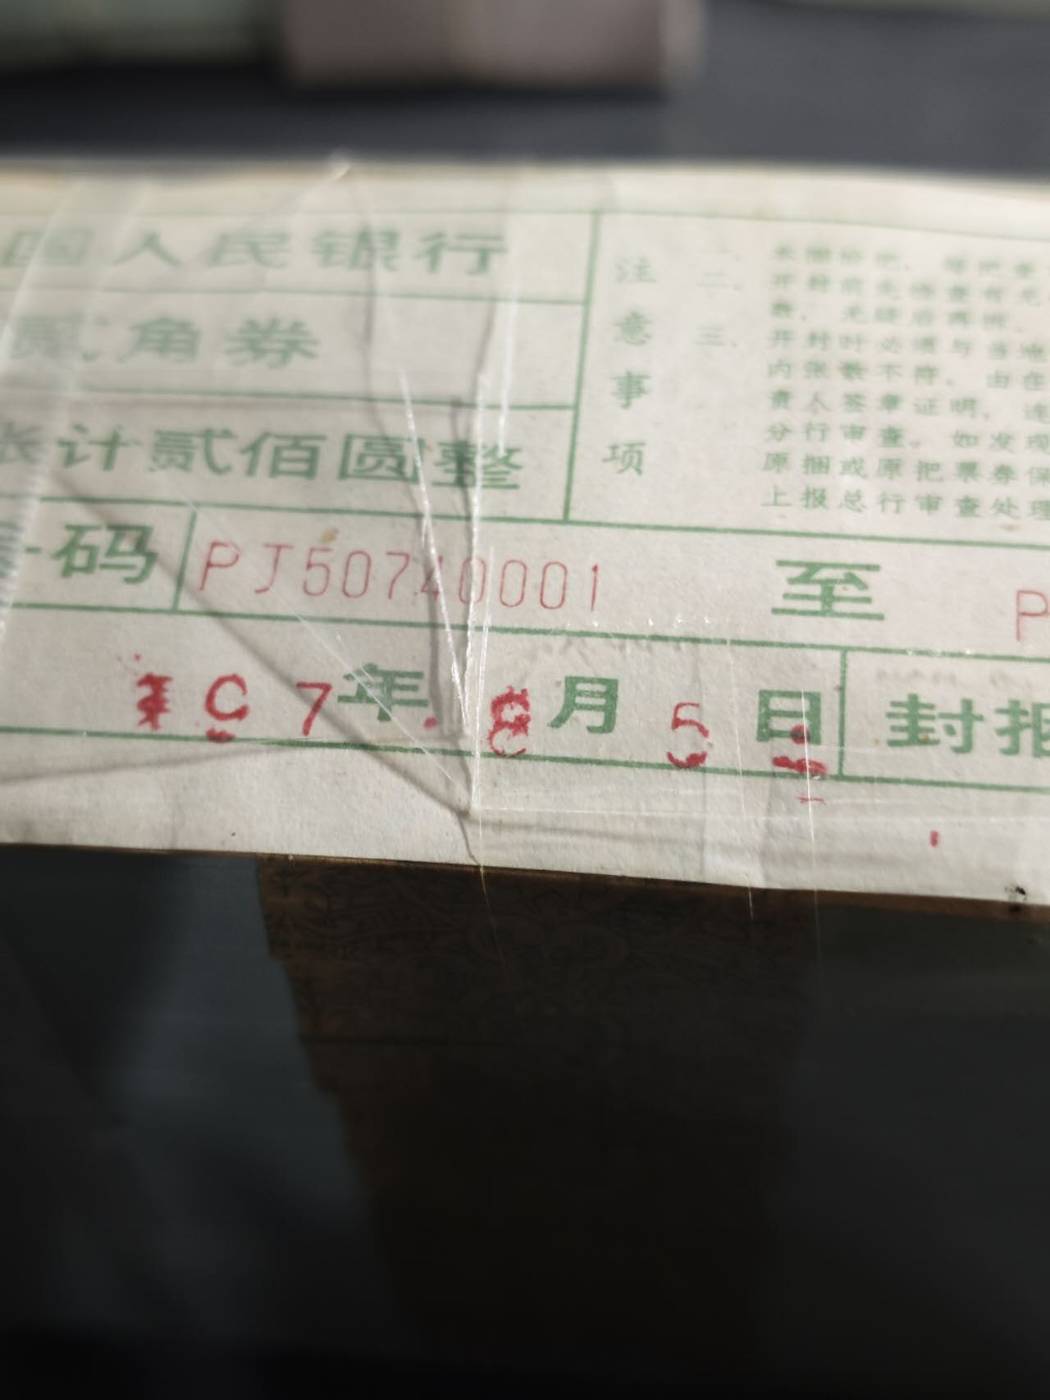 国人民银行
贰角券
张计贰佰圆整
码 PJ50740001 至 P
7年 8月 5日 封捆
注意事项
一、
二、
三、
开封时必须与当地
内张数不符,由在
责人签章证明,连
分行审查。如发现
原捆或原把票券保
上报总行审查处理